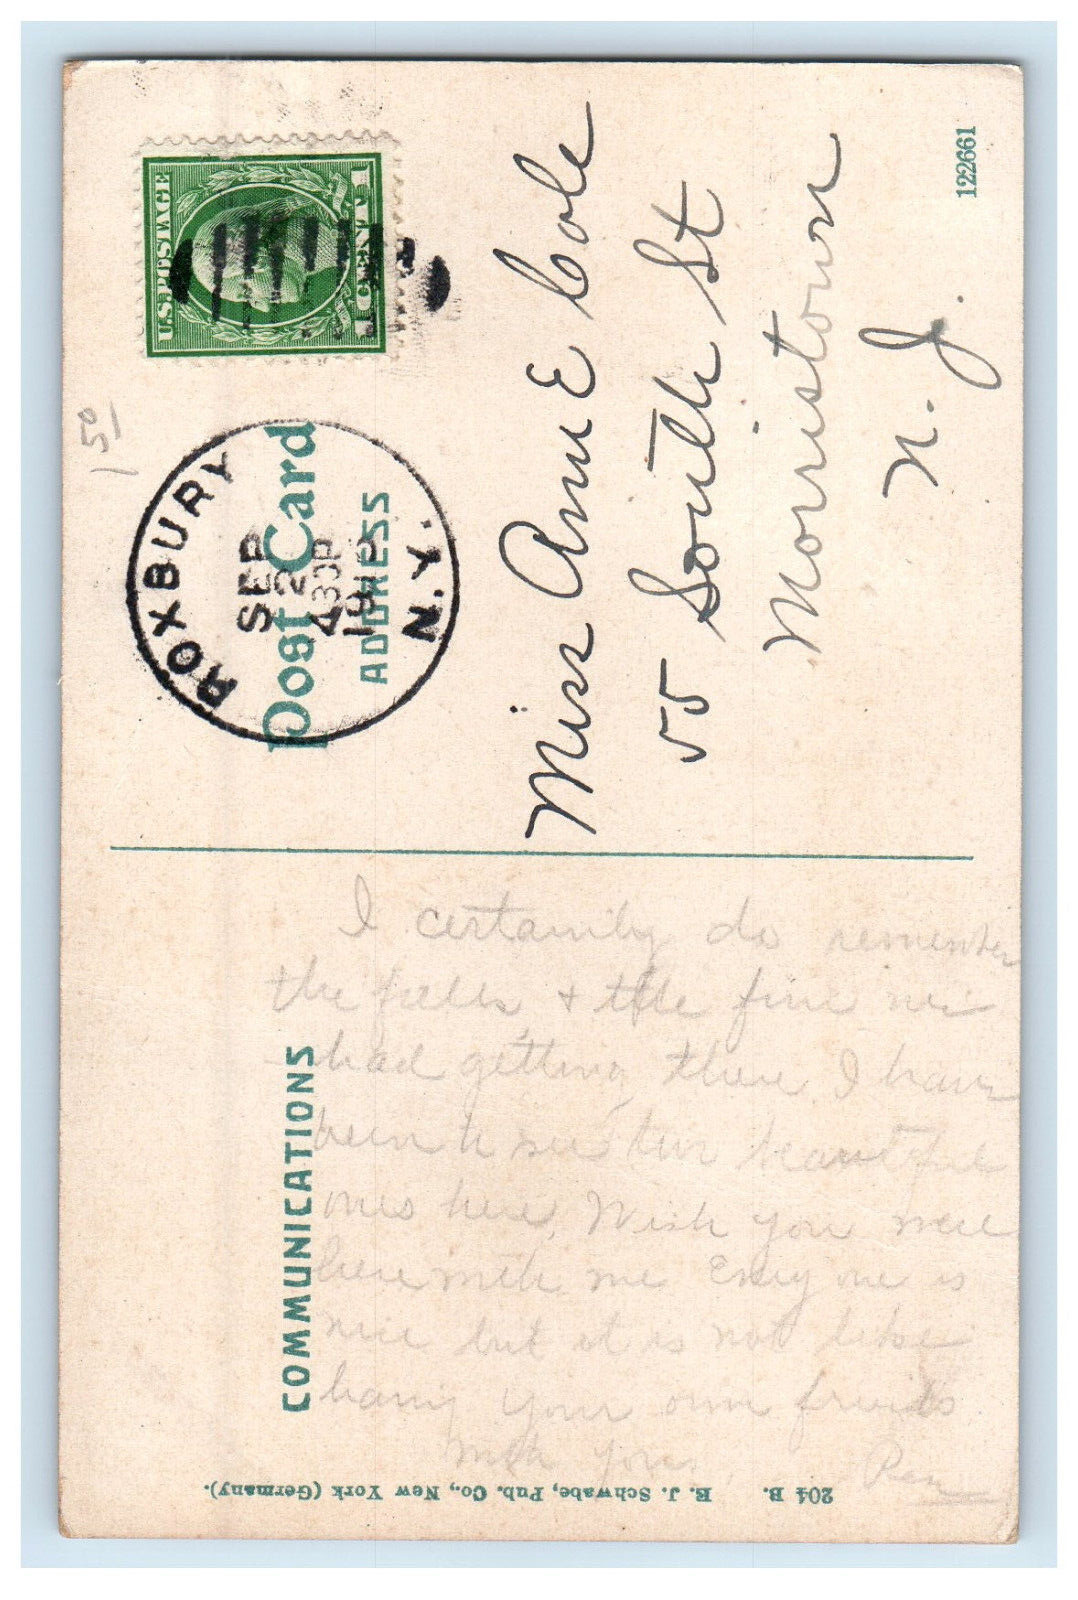 U.S. POSTAGE
1 CENT 1
1 50
Post Card
ADDRESS
ROXBURY
SEP
2
430P
191
N.Y.
Miss Ann E Cole
55 South St
Morristown
N. J.
122661
COMMUNICATIONS
I certainly do remember
the falls & the fine
had getting there. I have
been to see two beautiful
ones here. Wish you were
here with me Every one is
nice but it is not like
having your own friends
with you.
204 B. E. J. Schwabe, Pub. Co., New York (Germany).